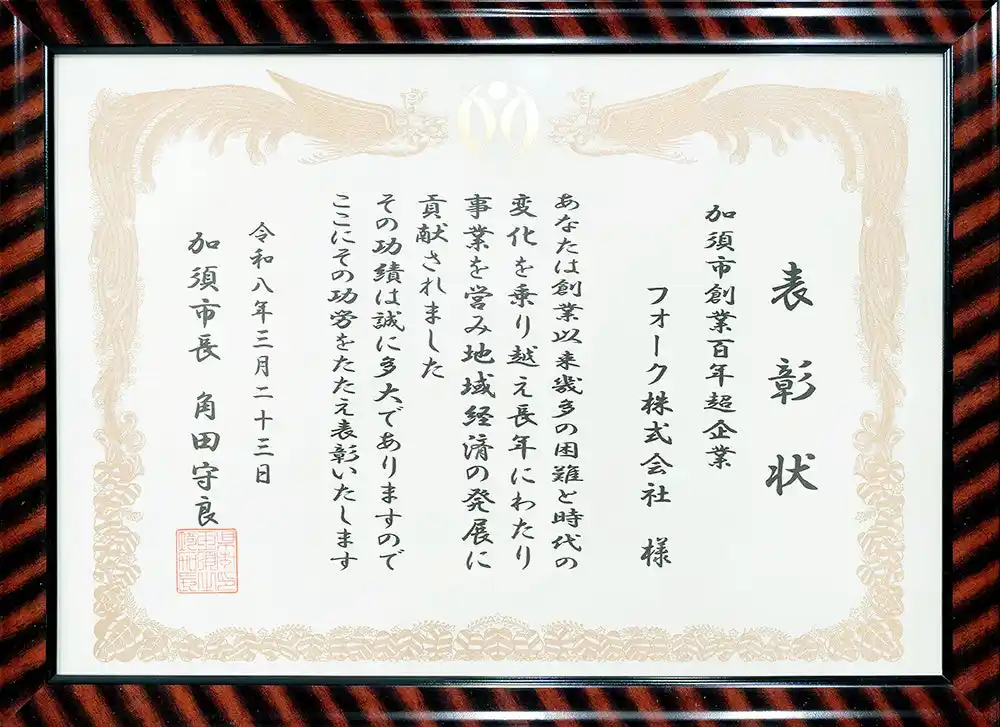 表彰状
加須市創業百年超企業
フォーク株式会社 様
あなたは創業以来幾多の困難と時代の
変化を乗り越え長年にわたり
事業を営み地域経済の発展に
貢献されました
その功績は誠に多大でありますので
ここにその功労をたたえ表彰いたします
令和八年三月二十三日
加須市長 角田守良